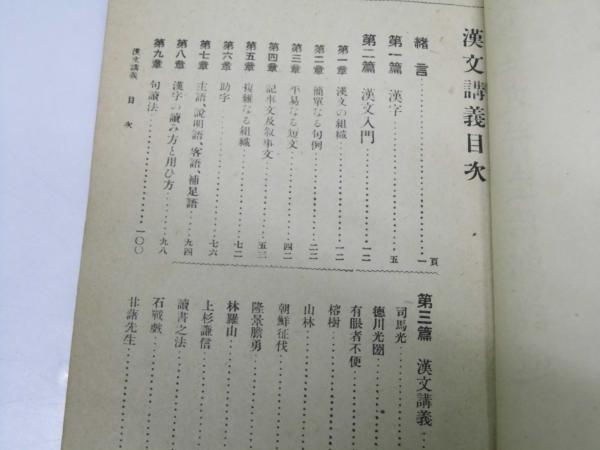 漢文講義目次
緒言……………………一頁
第一篇 漢字……………………五
第二篇 漢文入門……………………一二
第一章 漢文の組織……………………一二
第二章 簡單なる句例……………………二二
第三章 平易なる短文……………………四二
第四章 記事文及叙事文……………………五三
第五章 複雜なる組織……………………七二
第六章 助字……………………七六
第七章 主語、說明語、客語、補足語……………………九四
第八章 漢字の讀み方と用ひ方……………………九八
第九章 句讀法……………………一〇〇
漢文講義 目次
第三篇 漢文講義……………………
司馬光……………………
德川光圀……………………
有眼者不便……………………
榕樹……………………
山林……………………
朝鮮征伐……………………
隆景膽勇……………………
林羅山……………………
上杉謙信……………………
讀書之法……………………
石戰戲……………………
甘藷先生……………………